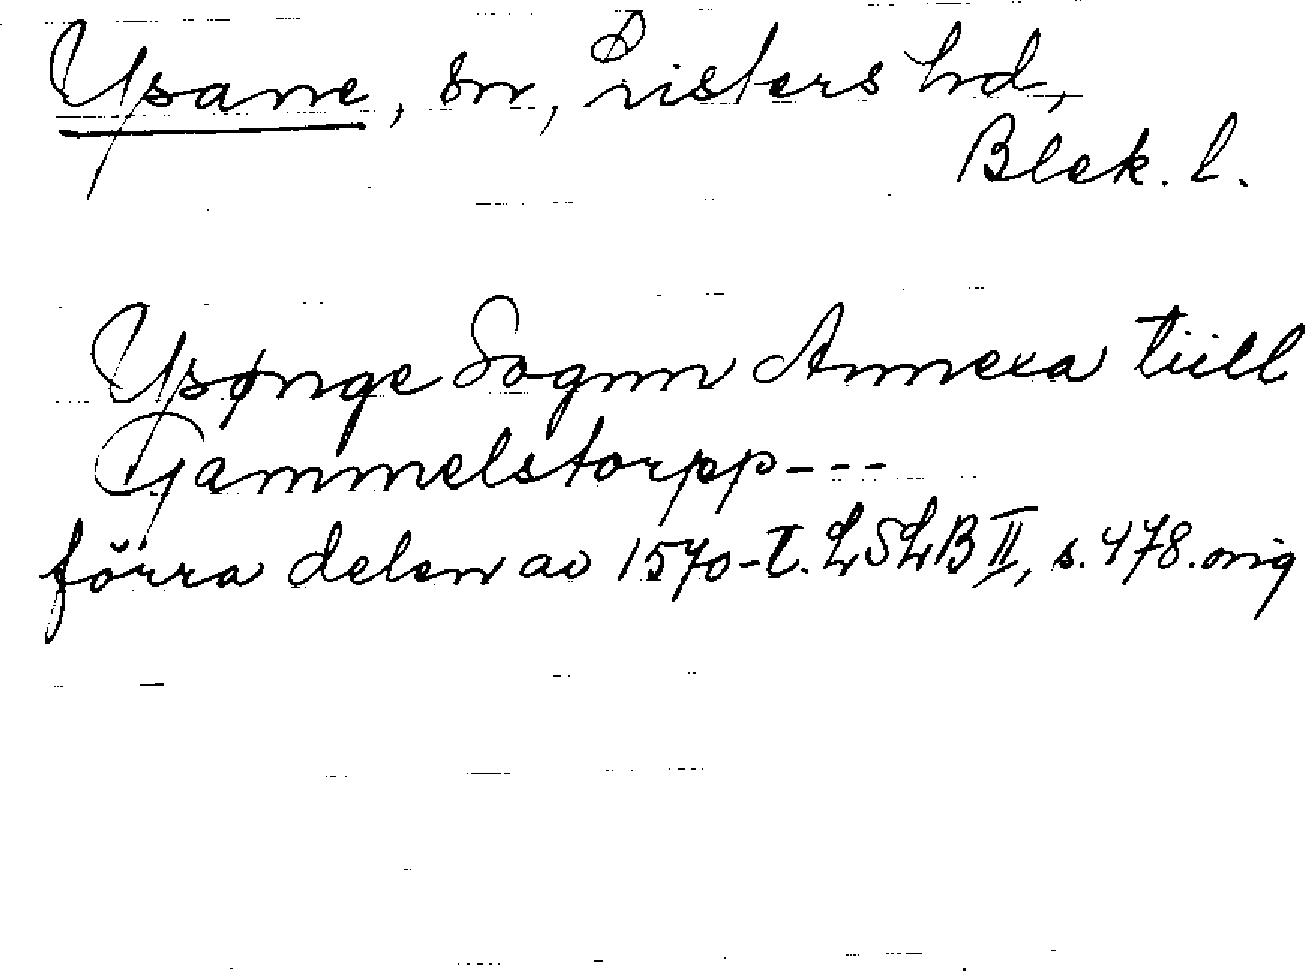 Ysane, sn, Listers hd,
Blek. l.
Ysønge Sognn Annexa tiill
Gammelstorpp---
förra delen av 1570-t. LSLB II, s. 478. orig